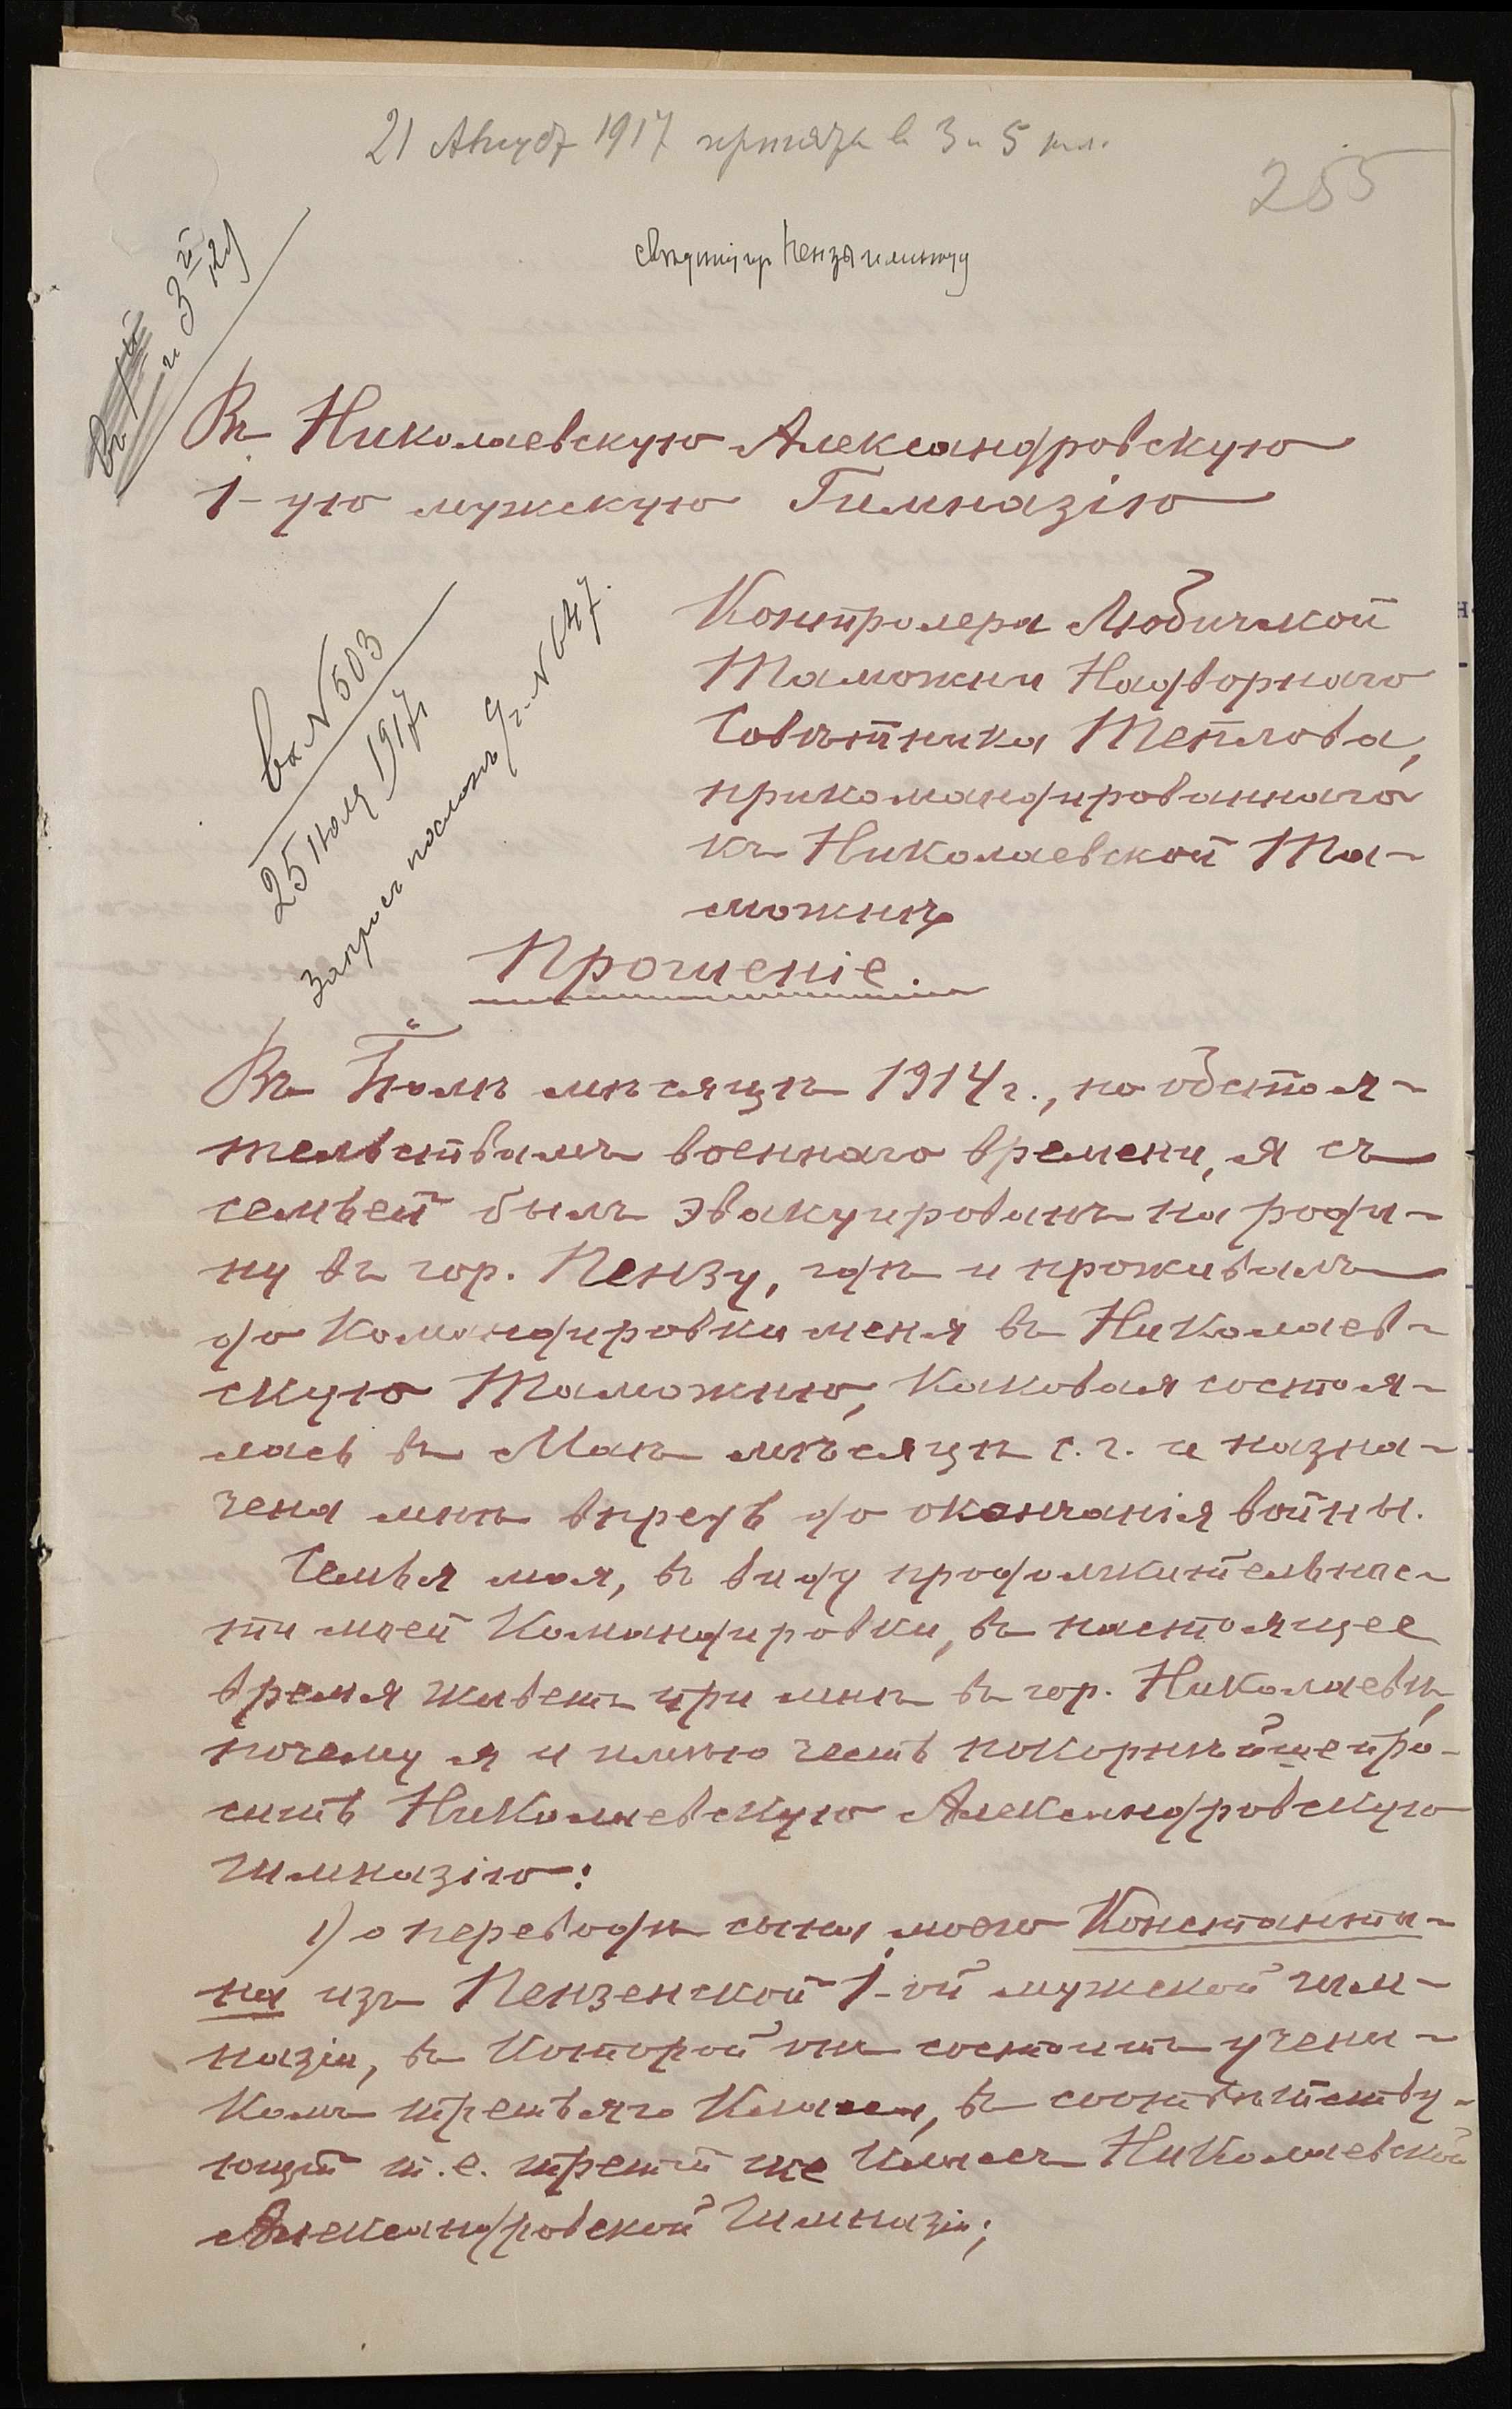 21 Август 1917 принять в 3 и 5 кл.
255
и 3й
Въ Николаевскую Александровскую
1-ую мужскую Гимназiю
Вх N 503
25 Июля 1917 г
Запросъ посланъ N 647.
Контролера Любичской
Таможни Надворнаго
Совѣтника Теплова,
прикомандированнаго
къ Николаевской Та-
можнѣ
Прошенiе.
Въ Iюлѣ мѣсяцѣ 1914 г., по обстоя-
тельствамъ военнаго времени, я съ
семьей былъ эвакуированъ на роди-
ну въ гор. Пензу, гдѣ и проживалъ
до командировки меня въ Николаев-
скую Таможню, каковая состоя-
лась въ Маѣ мѣсяцѣ с. г. и назна-
чена мнѣ впредь до окончанiя войны.
Семья моя, въ виду продолжительнос-
ти моей командировки, въ настоящее
время живетъ при мнѣ въ гор. Николаевѣ,
почему я и имѣю честь покорнѣйше про-
сить Николаевскую Александровскую
гимназiю:
1) о переводѣ сына моего Константи-
на изъ Пензенской 1-ой мужской гим-
назiи, въ которой онъ состоитъ учени-
комъ третьяго класса, въ соотвѣтству-
ющiй т. е. третiй же классъ Николаевской
Александровской Гимназiи;